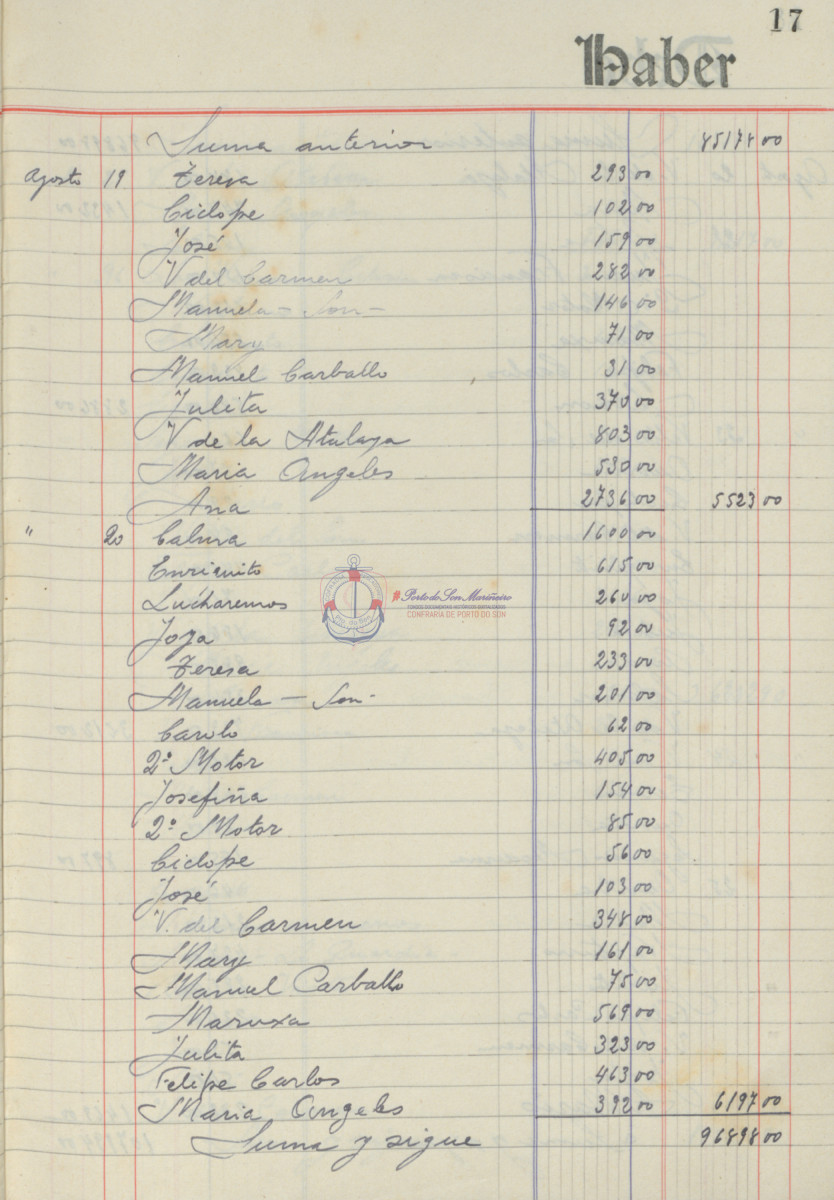 17
Haber
Suma anterior 85178 00
Agosto 19 Teresa 293 00
Ciclope 102 00
José 159 00
V del Carmen 282 00
Manuela - Son - 146 00
Mary 71 00
Manuel Carballo 31 00
Julita 370 00
V de la Atalaya 803 00
Maria Angeles 530 00
Ana 2736 00 5523 00
" 20 Calma 1600 00
Enriquito 615 00
Lucharemos 260 00
Joya 92 00
Teresa 233 00
Manuela - Son - 201 00
Carolo 62 00
2º Motor 405 00
Josefiña 154 00
2º Motor 85 00
Ciclope 56 00
José 103 00
V. del Carmen 348 00
Mary 161 00
Manuel Carballo 75 00
Maruxa 569 00
Julita 323 00
Felipe Carlos 463 00
Maria Angeles 392 00 6197 00
Suma y sigue 96898 00
Porto do Son Mariñeiro
CONFRARIA DE PORTO DO SON